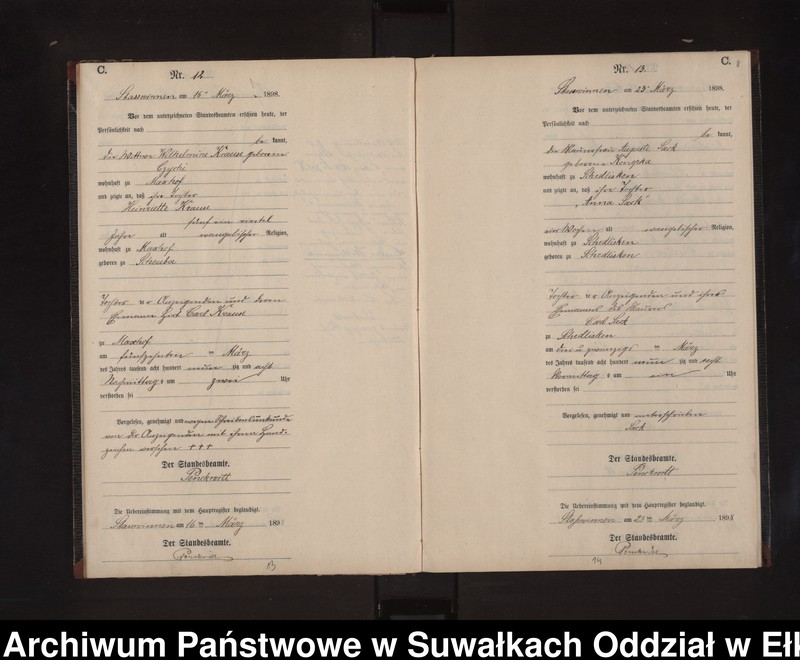 C.
Nr. 12
Stasswinnen am 16ten März 1898.
Vor dem unterzeichneten Standesbeamten erschien heute, der
Persönlichkeit nach
be kannt,
die Wittwe Wilhelmine Krause geborene
wohnhaft zu Maxhof
und zeigte an, daß ihre Tochter
Henriette Krause
fünf ein viertel
Jahre alt evangelischer Religion,
wohnhaft zu Maxhof
geboren zu
Tochter der Anzeigenden und deren
Ehemann Carl Krause
zu Maxhof
am fünfzehnten März
des Jahres tausend acht hundert neun zig und acht
Nachmittag s um zwei Uhr
verstorben sei
Vorgelesen, genehmigt und wegen Schreibensunkunde
von der Anzeigenden mit ihrem Hand-
zeichen versehen +++
Der Standesbeamte.
Die Uebereinstimmung mit dem Hauptregister beglaubigt.
Stasswinnen am 16ten März 1898
Der Standesbeamte.
C.
Nr. 13.
Stasswinnen am 23ten März 1898.
Vor dem unterzeichneten Standesbeamten erschien heute, der
Persönlichkeit nach
be kannt,
die Maurerfrau Auguste Sack
geborene
wohnhaft zu Schedlisken
und zeigte an, daß ihre Tochter
"Anna Sack"
vier Wochen alt evangelischer Religion,
wohnhaft zu Schedlisken
geboren zu Schedlisken
Tochter der Anzeigenden und ihres
Ehemannes des Maurers
Carl Sack
zu Schedlisken
am drei u zwanzigs März
des Jahres tausend acht hundert neun zig und acht
Vormittag s um ein Uhr
verstorben sei
Vorgelesen, genehmigt und unterschrieben
Sack
Der Standesbeamte.
Die Uebereinstimmung mit dem Hauptregister beglaubigt.
Stasswinnen am 23ten März 1898
Der Standesbeamte.
13
14
Archiwum Państwowe w Suwałkach Oddział w Ełk